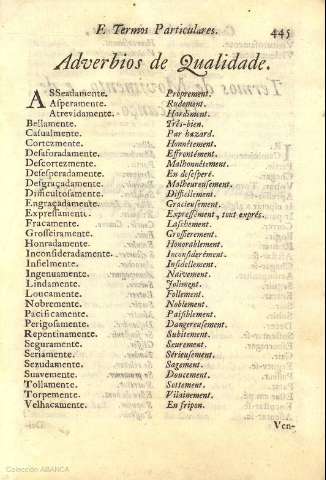 E Termos Particulares. 445
Adverbios de Qualidade.
ASSeadamente. Proprement.
Asperamente. Rudement.
Atrevidamente. Hardiment.
Bellamente. Très-bien.
Casualmente. Par hazard.
Cortezmente. Honnêtement.
Desaforadamente. Effrontément.
Descortezmente. Malhonnêtement.
Desesperadamente. En desesperé.
Desgraçadamente. Malheureusement.
Difficultosamente. Difficilement.
Engraçadamente. Gracieusement.
Expressamente. Expressément, tout exprés.
Fracamente. Laschement.
Grosseiramente. Grossierement.
Honradamente. Honorablement.
Inconsideradamente. Inconsiderément.
Infielmente. Infidellement.
Ingenuamente. Naïvement.
Lindamente. Joliment.
Loucamente. Follement.
Nobremente. Noblement.
Pacificamente. Paisiblement.
Perigosmente. Dangereusement.
Repentinamente. Subitement.
Seguramente. Seurement.
Seriamente. Sérieusement.
Sezudamente. Sagement.
Suavemente. Doucement.
Tollamente. Sottement.
Torpemente. Vilainement.
Velhacamente. En fripon.
Ven-
Colección ABANCA